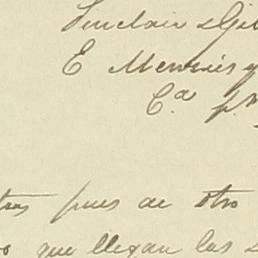 Sinclair & Gil
E Menesis y
Ca. p.
tras pues de otro
o que llegan las